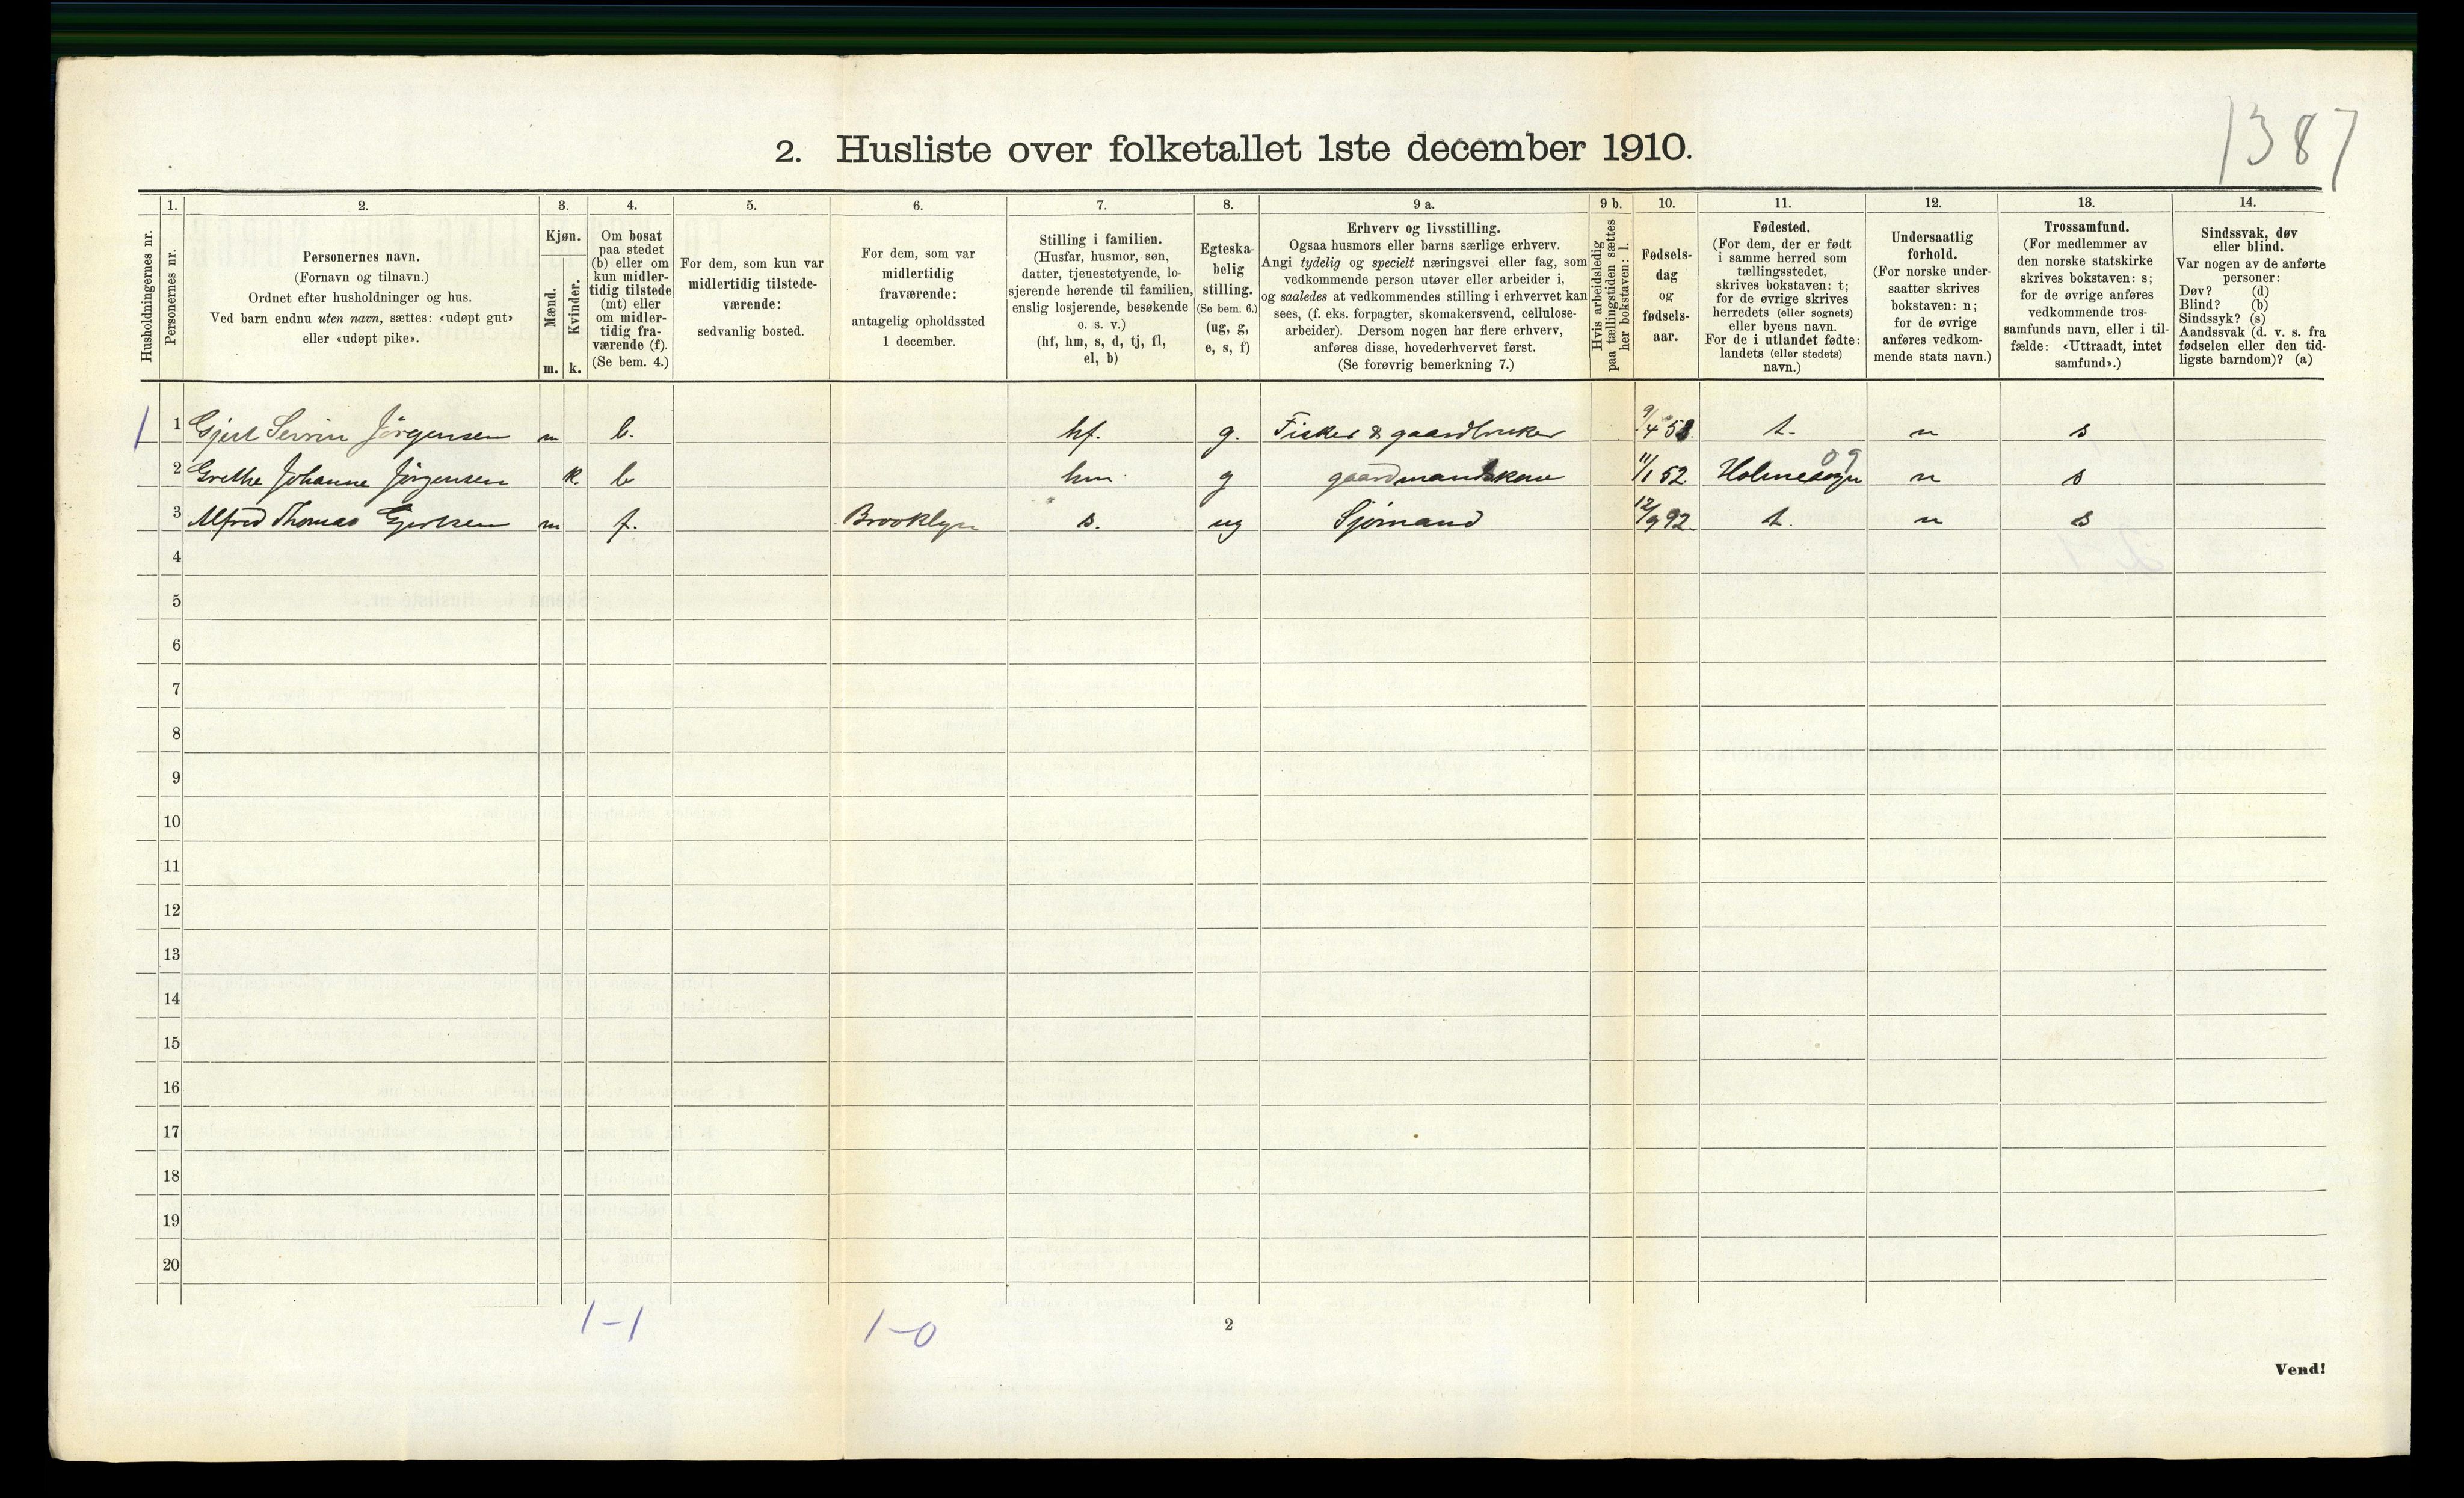 1387
2. Husliste over folketallet 1ste december 1910.
Husholdningernes nr.
1.
Personernes nr.
2.
Personernes navn.
(Fornavn og tilnavn.)
Ordnet efter husholdninger og hus.
Ved barn endnu uten navn, sættes: «udøpt gut»
eller «udøpt pike».
3.
Kjøn.
Mænd.
Kvinder.
m. k.
4.
Om bosat
paa stedet
(b) eller om
kun midler-
tidig tilstede
(mt) eller
om midler-
tidig fra-
værende (f).
(Se bem. 4.)
5.
For dem, som kun var
midlertidig tilstede-
værende:
sedvanlig bosted.
6.
For dem, som var
midlertidig
fraværende:
antagelig opholdssted
1 december.
7.
Stilling i familien.
(Husfar, husmor, søn,
datter, tjenestetyende, lo-
sjerende hørende til familien,
enslig losjerende, besøkende
o. s. v.)
(hf, hm, s, d, tj, fl,
el, b)
8.
Egteska-
belig
stilling.
(Se bem. 6.)
(ug, g,
e, s, f)
9 a.
Erhverv og livsstilling.
Ogsaa husmors eller barns særlige erhverv.
Angi tydelig og specielt næringsvei eller fag, som
vedkommende person utøver eller arbeider i,
og saaledes at vedkommendes stilling i erhvervet kan
sees, (f. eks. forpagter, skomakersvend, cellulose-
arbeider). Dersom nogen har flere erhverv,
anføres disse, hovederhvervet først.
(Se forøvrig bemerkning 7.)
9 b.
Hvis arbeidsledig
paa tællingstiden sættes
her bokstaven: l.
10.
Fødsels-
dag
og
fødsels-
aar.
11.
Fødested.
(For dem, der er født
i samme herred som
tællingsstedet,
skrives bokstaven: t;
for de øvrige skrives
herredets (eller sognets)
eller byens navn.
For de i utlandet fødte:
landets (eller stedets)
navn.)
12.
Undersaatlig
forhold.
(For norske under-
saatter skrives
bokstaven: n;
for de øvrige
anføres vedkom-
mende stats navn.)
13.
Trossamfund.
(For medlemmer av
den norske statskirke
skrives bokstaven: s;
for de øvrige anføres
vedkommende tros-
samfunds navn, eller i til-
fælde: «Uttraadt, intet
samfund».)
14.
Sindssvak, døv
eller blind.
Var nogen av de anførte
personer:
Døv? (d)
Blind? (b)
Sindssyk? (s)
Aandssvak (d. v. s. fra
fødselen eller den tid-
ligste barndom)? (a)
1 1 Gjert Serrin Jörgensen m b. hf. g. Fisker & gaardbruker 9/4 t. n s
09
2 Grethe Johanne Jörgensen k. b hm g gaardmandskone 11/1 52 Holmesogn n s
3 Alfred Thomas Gjertsen m f. Brooklyn s. ug Sjömand 12/9 92. t. n s
4
5
6
7
8
9
10
11
12
13
14
15
16
17
18
19
20
1-1 1-0
2
Vend!